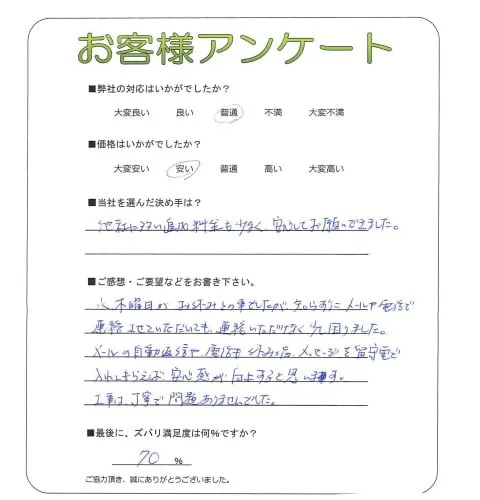 お客様アンケート
■弊社の対応はいかがでしたか?
大変良い 良い 普通 不満 大変不満
■価格はいかがでしたか?
大変安い 安い 普通 高い 大変高い
■当社を選んだ決め手は?
他社に多い追加料金も少なく、安心してお願いできました。
■ご感想・ご要望などをお書き下さい。
水木曜日がお休みとの事でしたが、知らずにメールや電話で
連絡させていただいても、連絡いただけなく少し困りました。
メールの自動返信や、電話も休み メッセージを留守電で
入れてもらえば、安心感が向上すると思います。
工事は、丁寧で問題ありませんでした。
■最後に、ズバリ満足度は何%ですか?
70 %
ご協力頂き、誠にありがとうございました。